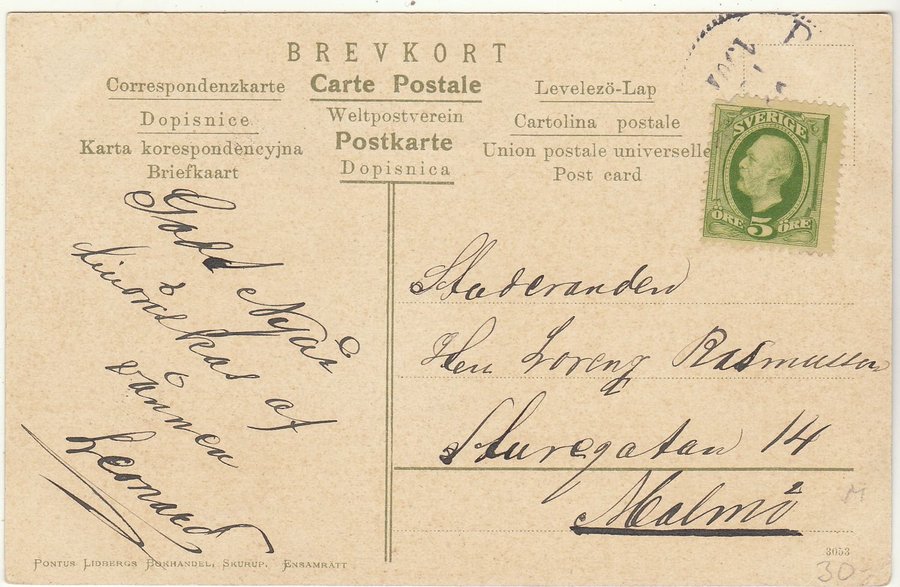 BREVKORT
Correspondenzkarte
Carte Postale
Levelező-Lap
Dopisnice
Weltpostverein
Cartolina postale
Karta korespondencyjna
Postkarte
Union postale universelle
Briefkaart
Dopisnica
Post card
SVERIGE
ÖRE 5 ÖRE
Godt Nyår
tillönskas af
vännen
Leonard
Herr Lorenz Rasmussen
Sturegatan 14
Malmö
M
3053
30-
PONTUS LIDBERGS BOKHANDEL, SKURUP. ENSAMRÄTT